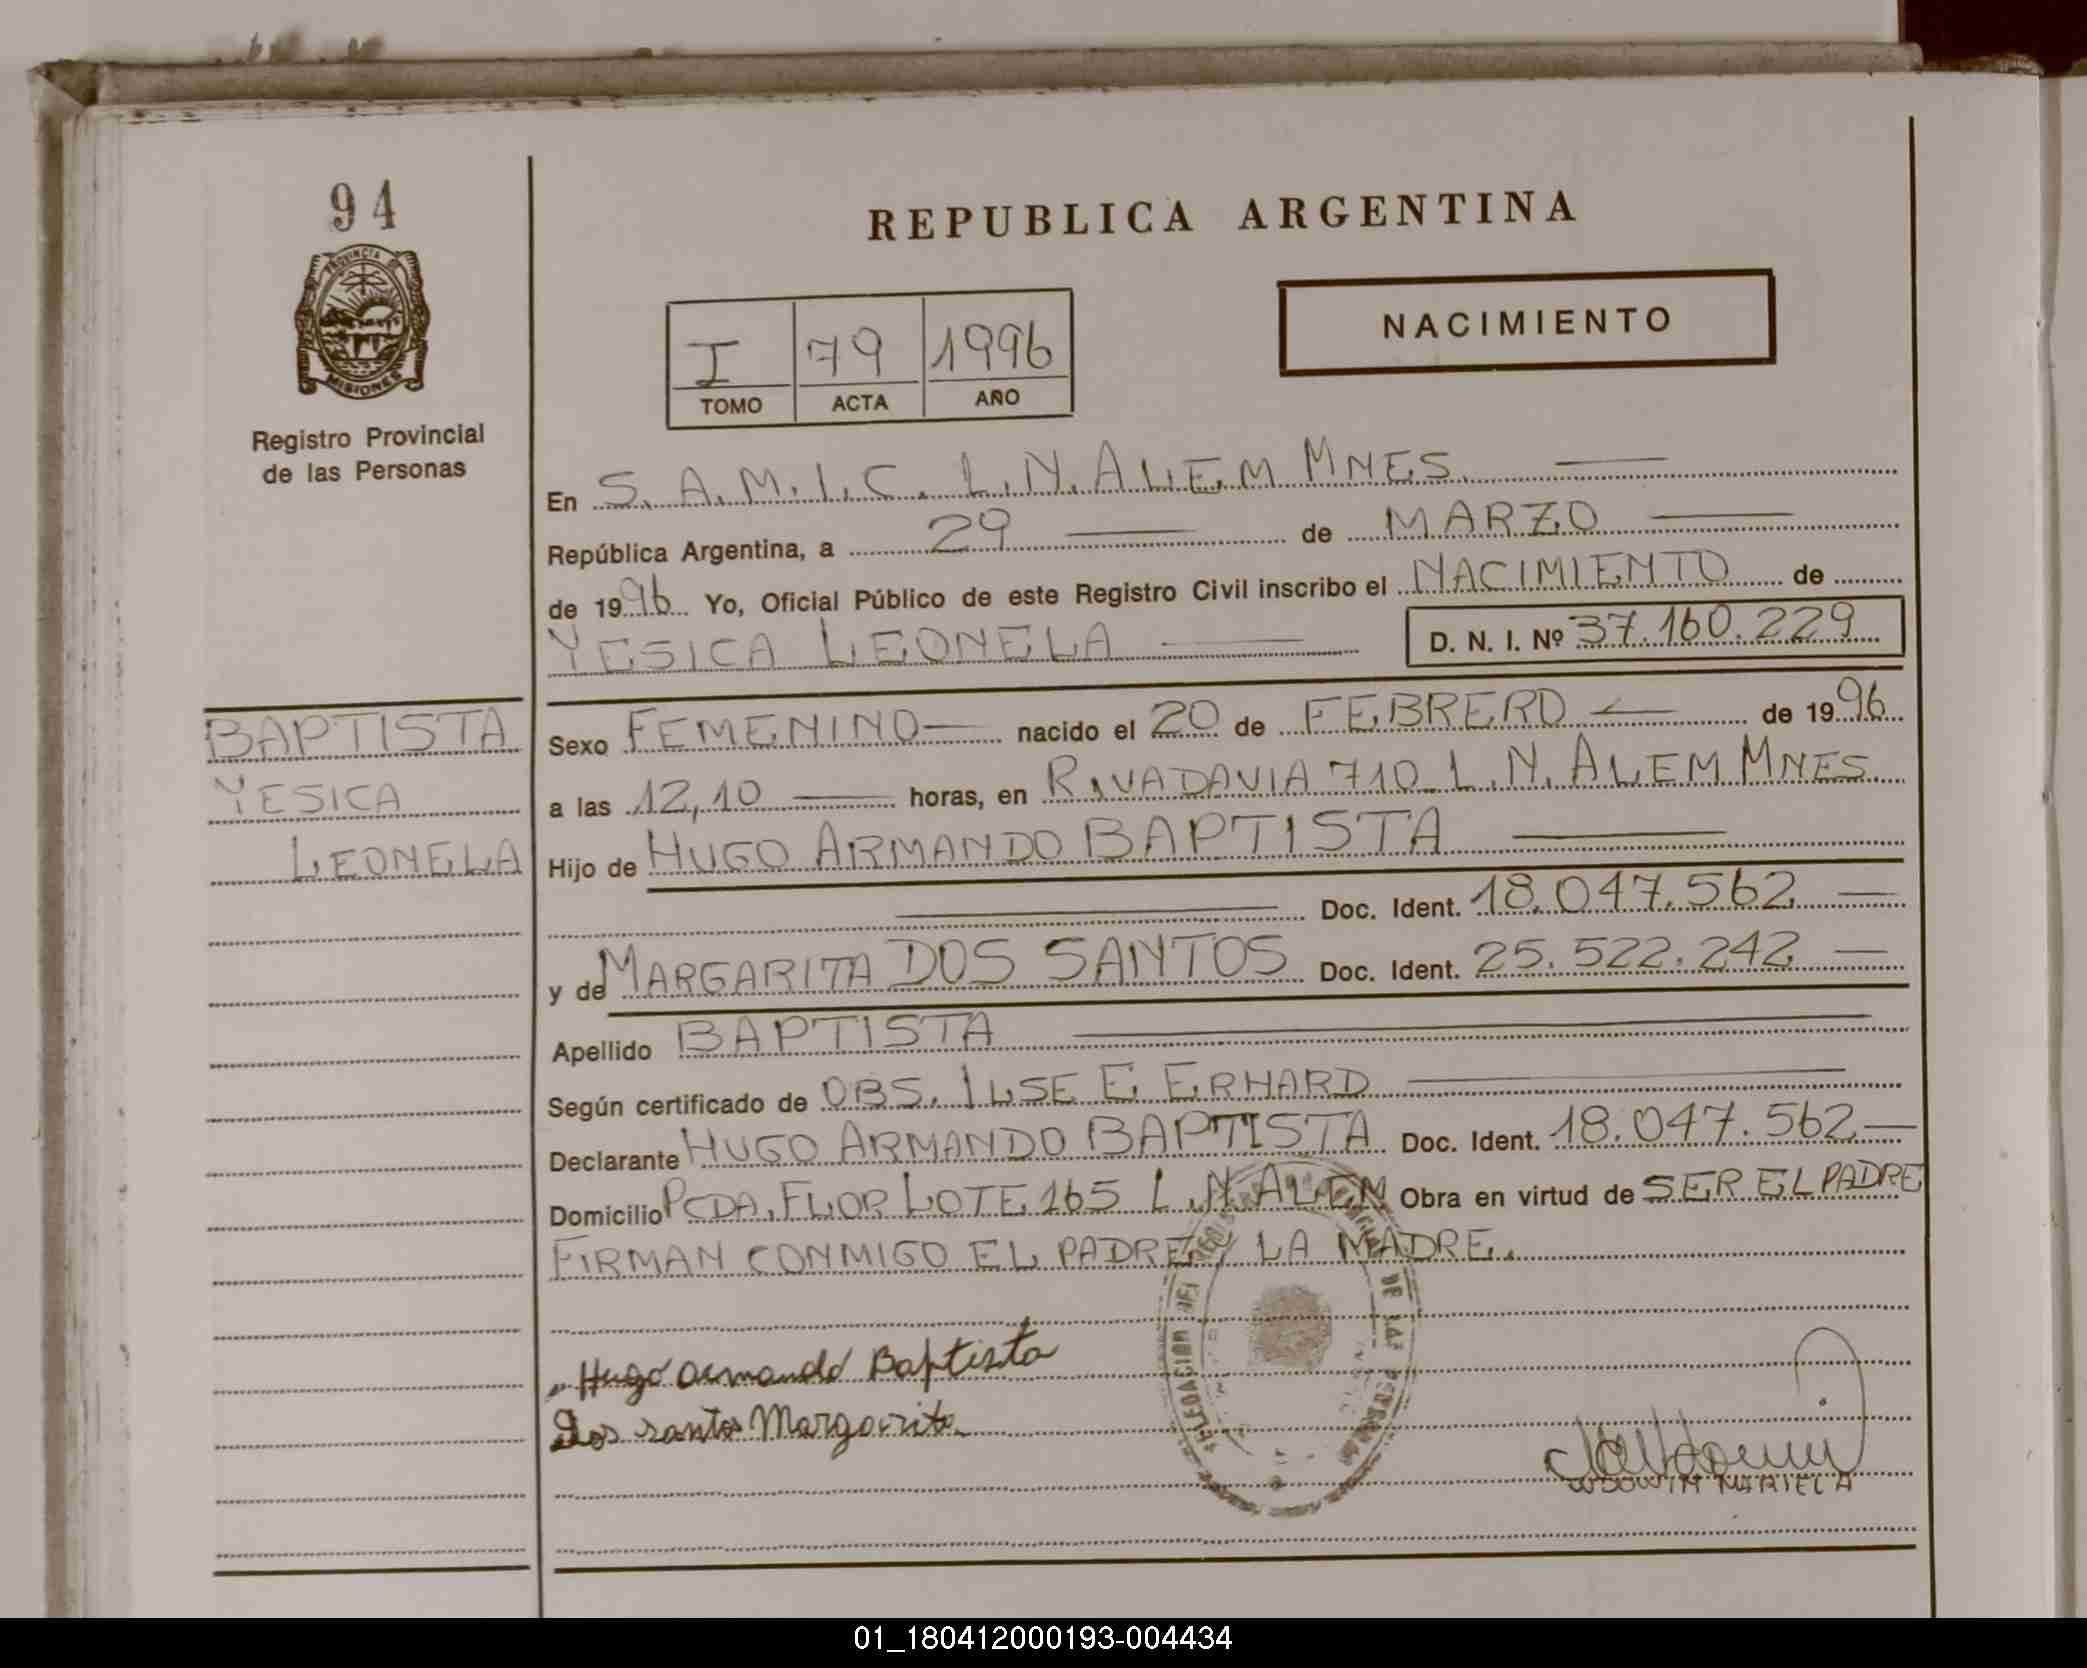 94
REPUBLICA ARGENTINA
PROVINCIA DE
MISIONES
Registro Provincial
de las Personas
I 79 1996
TOMO ACTA AÑO
NACIMIENTO
En S.A.M.I.C. L.N. ALEM MNES.
República Argentina, a 29 de MARZO
de 1996 Yo, Oficial Público de este Registro Civil inscribo el NACIMIENTO de
YESICA LEONELA D. N. I. Nº 37.160.229
BAPTISTA
YESICA
LEONELA
Sexo FEMENINO nacido el 20 de FEBRERO de 1996
a las 12,10 horas, en RIVADAVIA 710 L.N. ALEM MNES.
Hijo de HUGO ARMANDO BAPTISTA
Doc. Ident. 18.047.562
y de MARGARITA DOS SANTOS Doc. Ident. 25.522.242
Apellido BAPTISTA
Según certificado de OBS. ILSE E ERHARD
Declarante HUGO ARMANDO BAPTISTA Doc. Ident. 18.047.562
Domicilio PCDA. FLOR LOTE 165 L.N ALEM Obra en virtud de SER EL PADRE
FIRMAN CONMIGO EL PADRE, LA MADRE.
Hugo Armando Baptista
Dos santos Margarita
DELEGACION DEL DE LAS
MARIELA
01_180412000193-004434